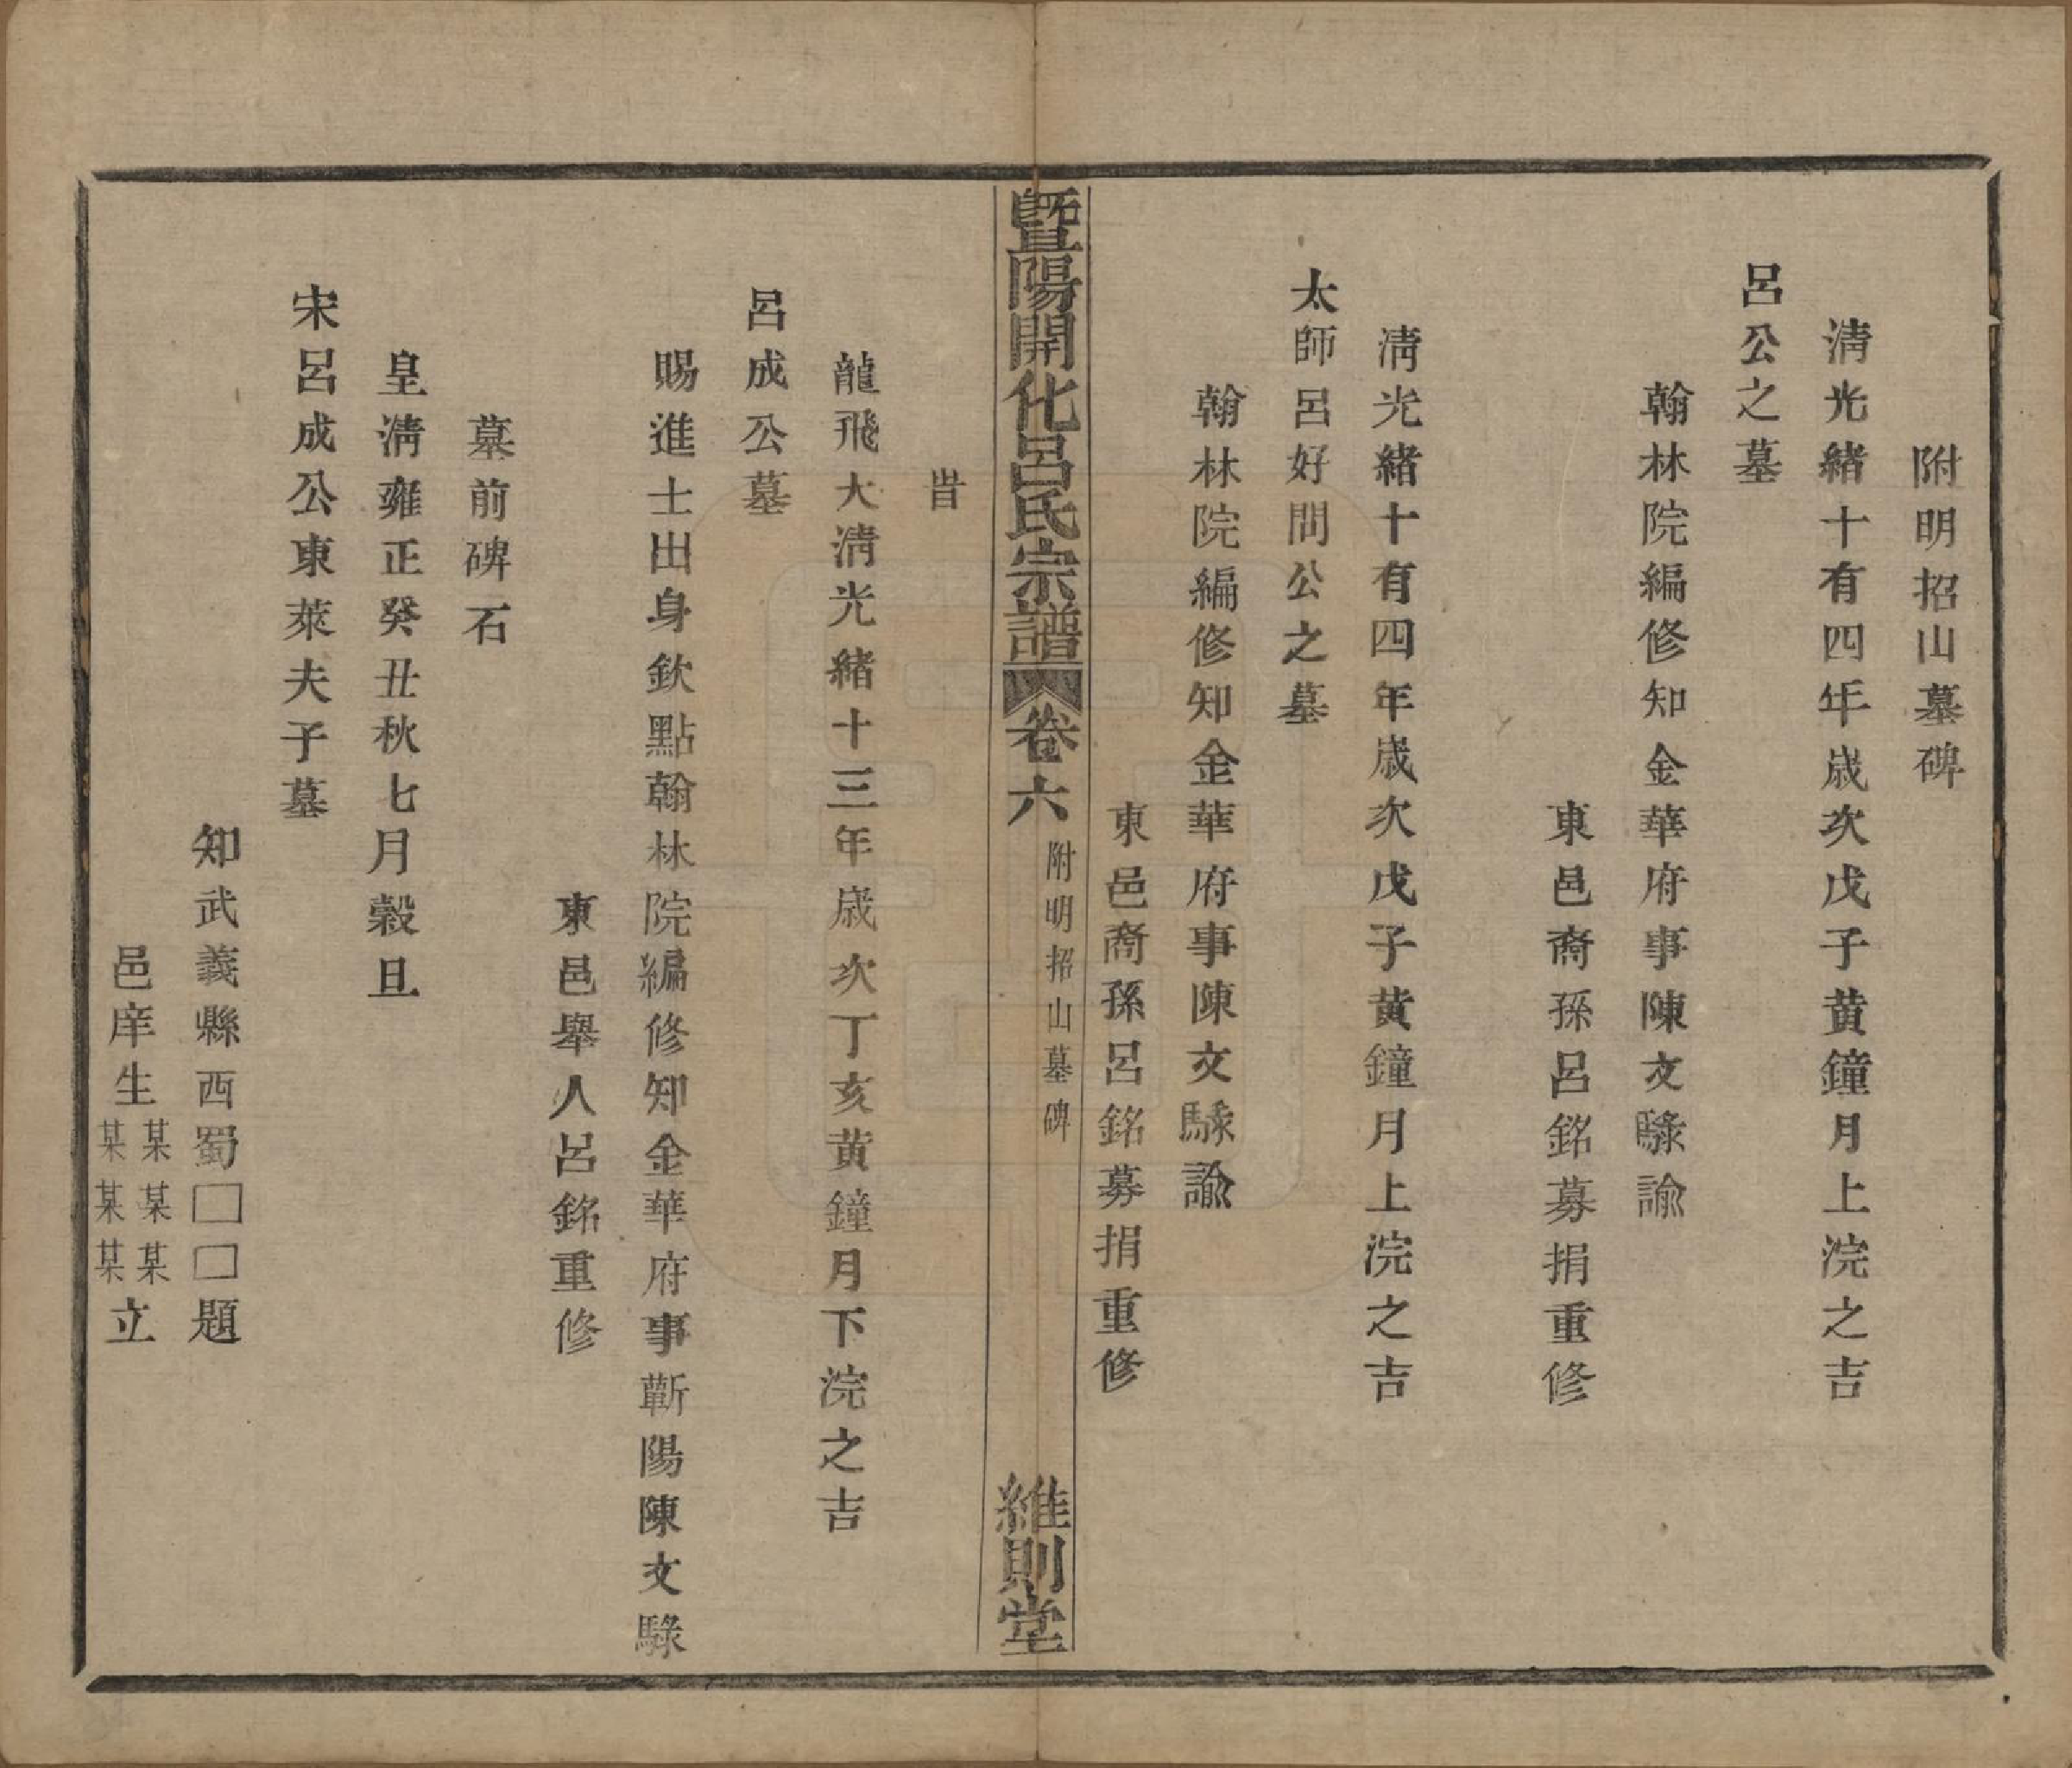 附明招山墓碑
清光緒十有四年歲次戊子黃鐘月上浣之吉
呂公之墓
翰林院編修知金華府事陳文騄諭
東邑裔孫呂銘募捐重修
清光緒十有四年歲次戊子黃鐘月上浣之吉
太師呂好問公之墓
翰林院編修知金華府事陳文騄諭
東邑裔孫呂銘募捐重修
暨陽開化呂氏宗譜 卷六 附明招山墓碑 維則堂
旹
龍飛大清光緒十三年歲次丁亥黃鐘月下浣之吉
呂成公墓
賜進士出身欽點翰林院編修知金華府事蘄陽陳文騄
東邑舉人呂銘重修
墓前碑石
皇清雍正癸丑秋七月穀旦
宋呂成公東萊夫子墓
知武義縣西蜀□□題
邑庠生某某某某某某立